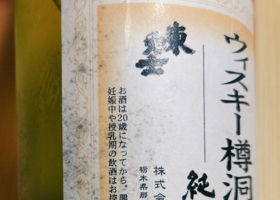 ウィスキー樽洞
純
東
株式会
栃木県那
お酒は20歳になってから。
妊娠中や授乳期の飲酒はお控